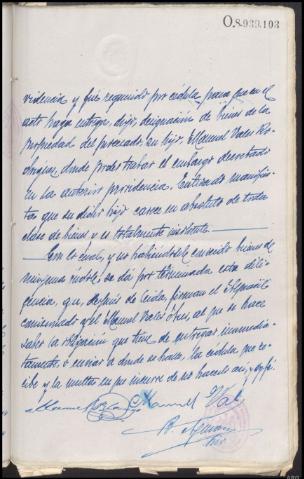 O.8.933.103
videncia y fué requerido por cédula para que en el
acto haga entrega, digo, designación de bienes de la
propiedad del procesado su hijo, Manuel Vales
donde poder trabar el embargo decretado
en la anterior providencia. Enterado manifies-
ta que su dicho hijo carece en absoluto de toda
clase de bienes y es totalmente insolvente.
Con lo cual, y no habiéndosele conocido bienes de
ninguna índole se dá por terminada esta dili-
gencia, que, después de leida, firman el
y el Manuel Vales al que se hace
saber la obligación que tiene de entregar inmedia-
tamente, ó enviar a donde se halle, la cédula que re-
cibe y la multa en que incurre de no hacerlo así; doy fé.
Manuel Vales